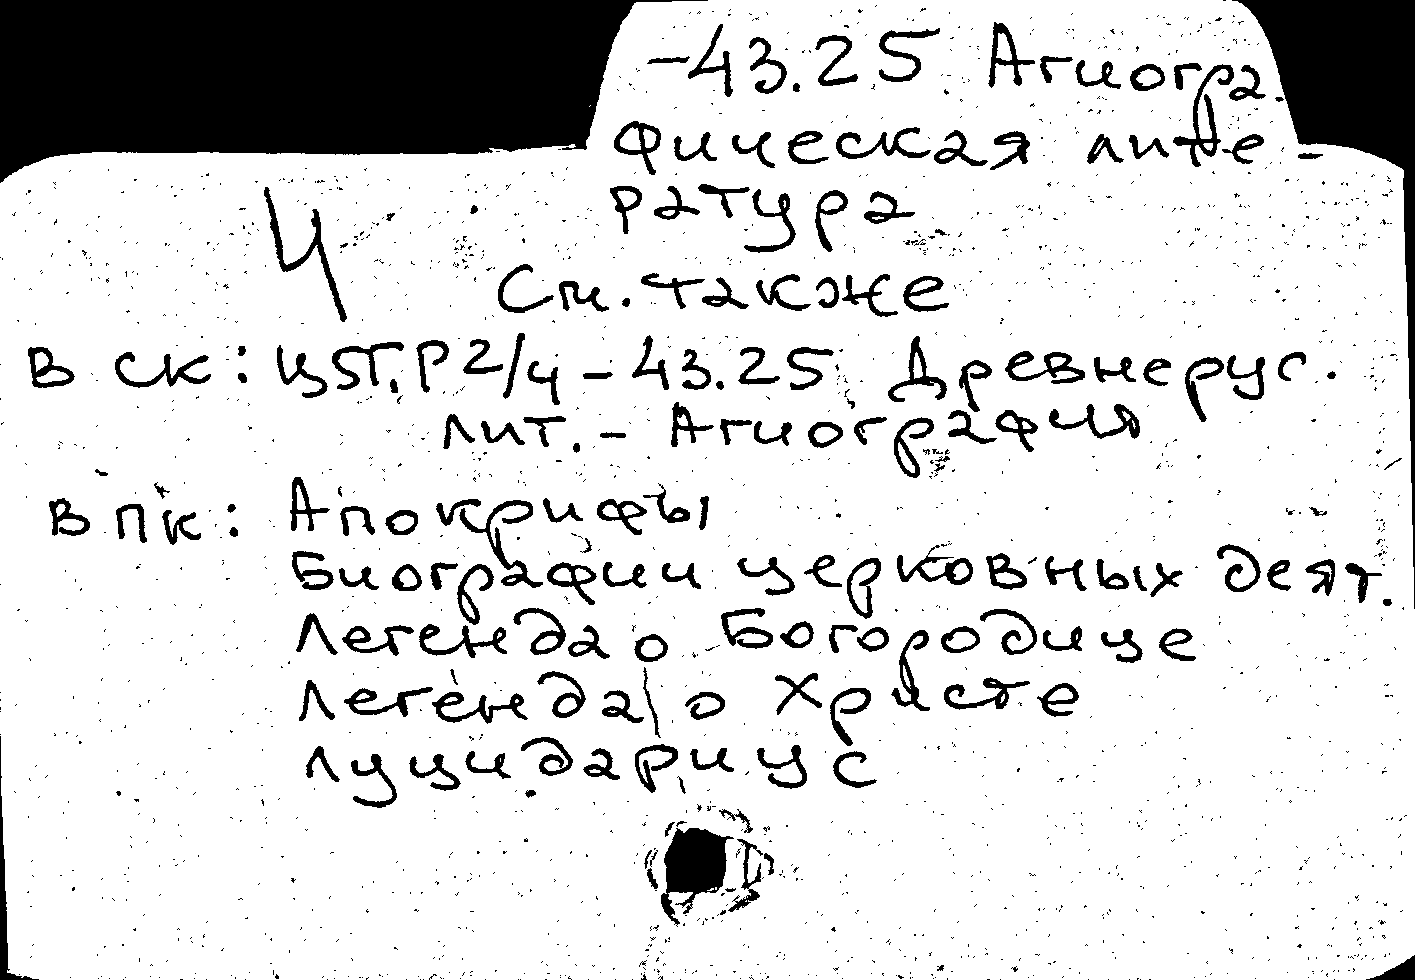 -43.25 Агиогра-
фическая лите-
ратура
Ч
См. также
в СК: Ц5Г,Р2/ч-43.25 Древнерус.
лит. - Агиография
в ПК: Апокрифы
Биографии церковных деят.
Легенда о Богородице
Легенда о Христе
Луцидариус